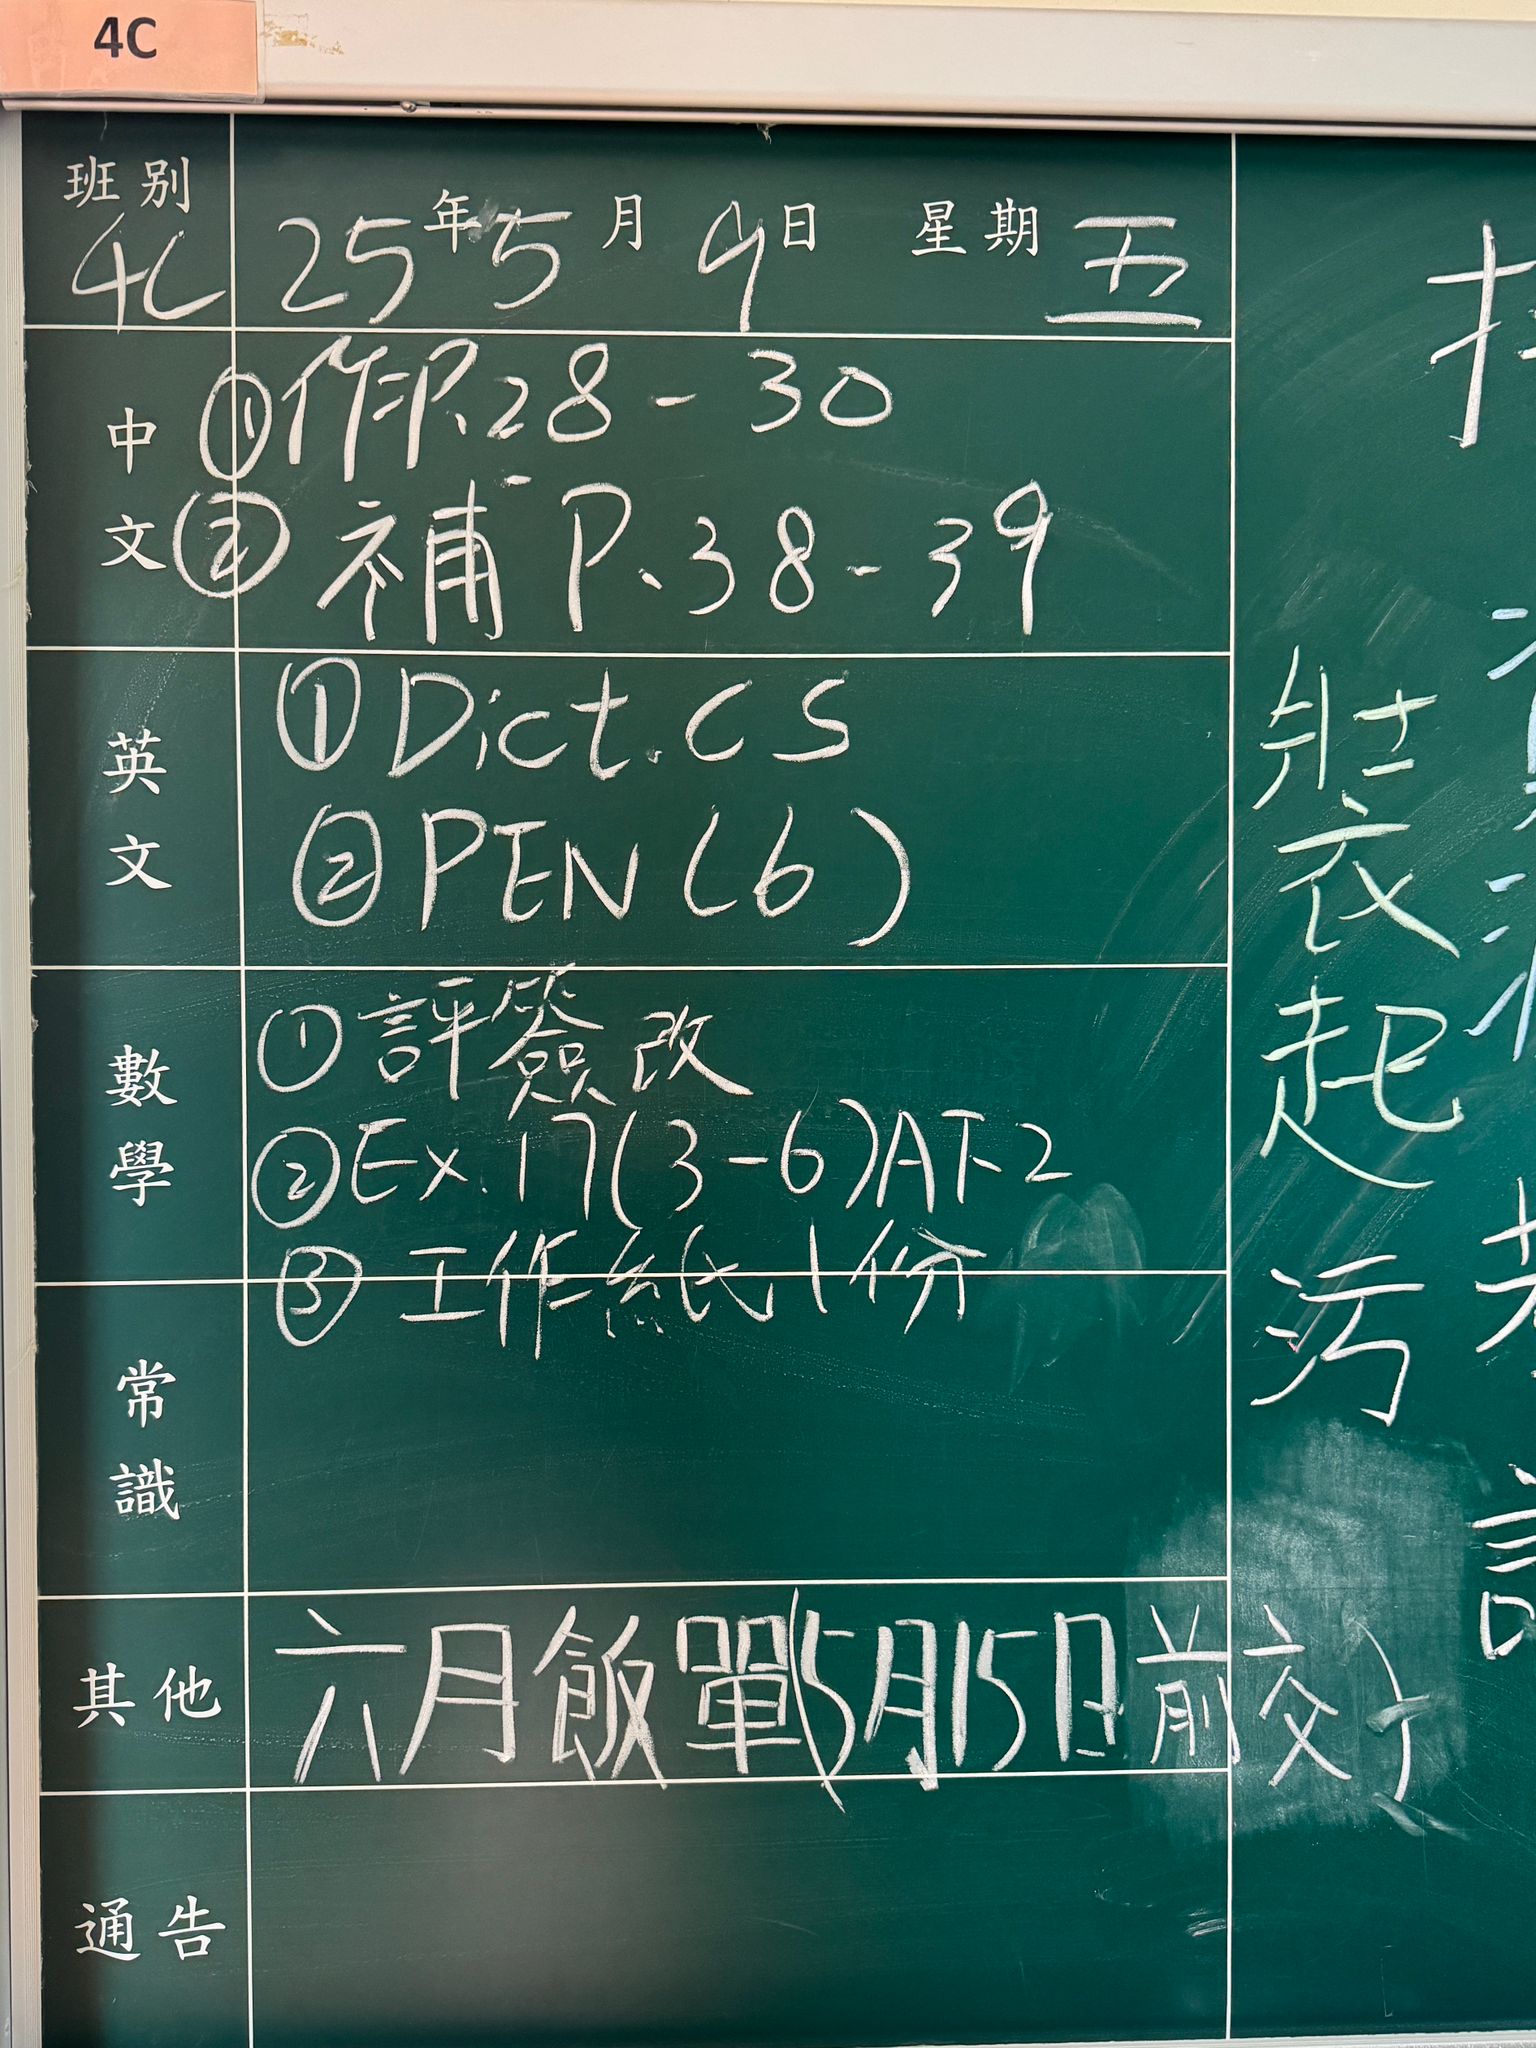 4C
班別
4C
25年5月9日 星期五
中文
①作P.28-30
② 補 P.38-39
英文
① Dict. CS
② PEN (6)
數學
① 評簽改
② Ex.17(3-6)AT-2
③ 工作紙1份
常識
其他
六月飯單(5月15日前交)
通告
裝衣起污